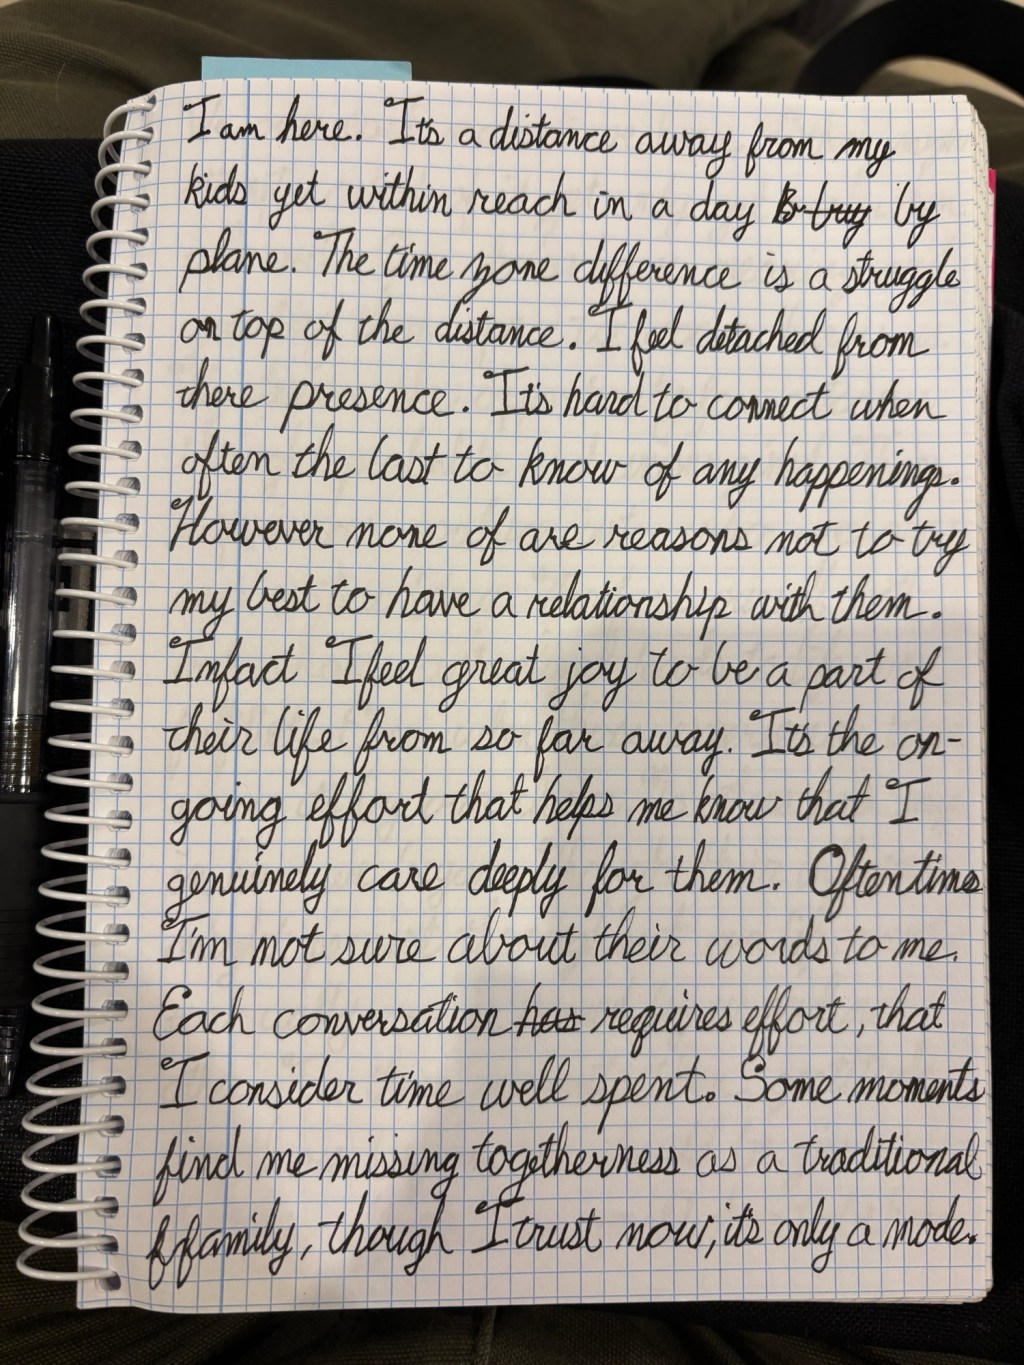 I am here. It's a distance away from my
kids yet within reach in a day B try by
plane. The time zone difference is a struggle
on top of the distance. I feel detached from
there presence. It's hard to connect when
often the last to know of any happenings.
However none of are reasons not to try
my best to have a relationship with them.
Infact I feel great joy to be a part of
their life from so far away. It's the on-
going effort that helps me know that I
genuinely care deeply for them. Oftentimes
I'm not sure about their words to me.
Each conversation has requires effort, that
I consider time well spent. Some moments
find me missing togetherness as a traditional
f family, though I trust now, it's only a mode.